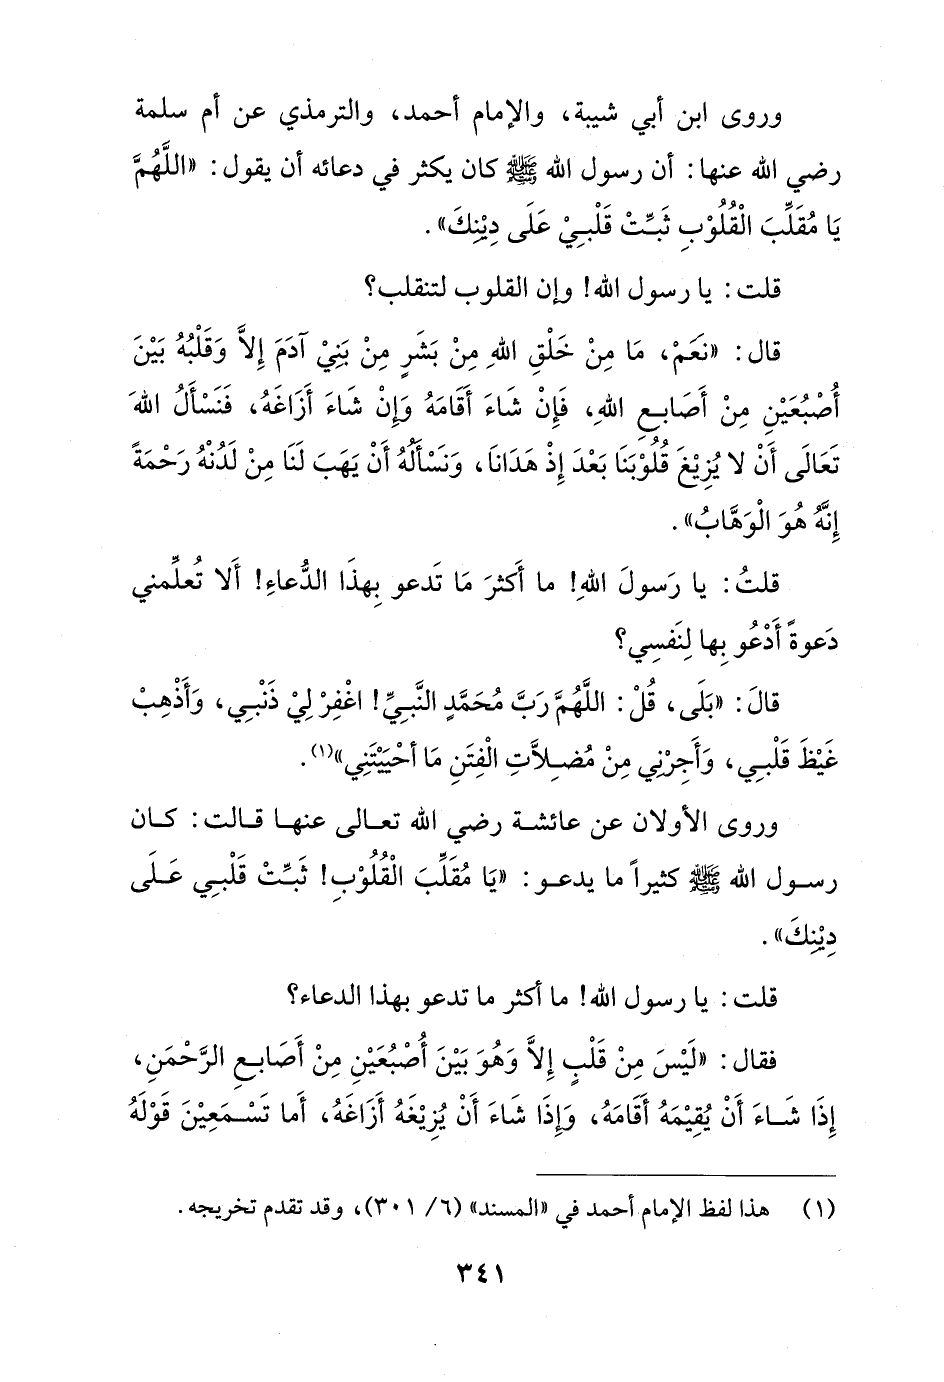 وروى ابن أبي شيبة، والإمام أحمد، والترمذي عن أم سلمة
رضي الله عنها: أن رسول الله ﷺ كان يكثر في دعائه أن يقول: «اللَّهُمَّ
يَا مُقَلِّبَ الْقُلُوْبِ ثَبِّتْ قَلْبِيْ عَلَى دِيْنِكَ».
قلت: يا رسول الله! وإن القلوب لتنقلب؟
قال: «نَعَمْ، مَا مِنْ خَلْقِ اللهِ مِنْ بَشَرٍ مِنْ بَنِيْ آدَمَ إِلاَّ وَقَلْبُهُ بَيْنَ
أُصْبُعَيْنِ مِنْ أَصَابِعِ اللهِ، فَإِنْ شَاءَ أَقَامَهُ وَإِنْ شَاءَ أَزَاغَهُ، فَنَسْأَلُ اللهَ
تَعَالَى أَنْ لا يُزِيْغَ قُلُوْبَنَا بَعْدَ إِذْ هَدَانَا، وَنَسْأَلُهُ أَنْ يَهَبَ لَنَا مِنْ لَدُنْهُ رَحْمَةً
إِنَّهُ هُوَ الْوَهَّابُ».
قلتُ: يا رَسولَ اللهِ! ما أَكثرَ مَا تَدعو بِهذَا الدُّعاءِ! أَلا تُعلِّمني
دَعوةً أَدْعُو بِها لِنَفسِي؟
قالَ: «بَلَى، قُلْ: اللَّهُمَّ رَبَّ مُحَمَّدٍ النَّبِيِّ! اغْفِرْ لِيْ ذَنْبِي، وَأَذْهِبْ
غَيْظَ قَلْبِي، وَأَجِرْنِي مِنْ مُضِلاَّتِ الْفِتَنِ مَا أَحْيَيْتَنِي»(١).
وروى الأولان عن عائشة رضي الله تعالى عنها قالت: كان
رسول الله ﷺ كثيراً ما يدعو: «يَا مُقَلِّبَ الْقُلُوْبِ! ثَبِّتْ قَلْبِي عَلَى
دِيْنِكَ».
قلت: يا رسول الله! ما أكثر ما تدعو بهذا الدعاء؟
فقال: «لَيْسَ مِنْ قَلْبٍ إِلاَّ وَهُوَ بَيْنَ أُصْبُعَيْنِ مِنْ أَصَابِعِ الرَّحْمَنِ،
إِذَا شَاءَ أَنْ يُقِيْمَهُ أَقَامَهُ، وَإِذَا شَاءَ أَنْ يُزِيْغَهُ أَزَاغَهُ، أَما تَسْمَعِيْنَ قَوْلَهُ
(١) هذا لفظ الإمام أحمد في «المسند» (٦/ ٣٠١)، وقد تقدم تخريجه.
٣٤١